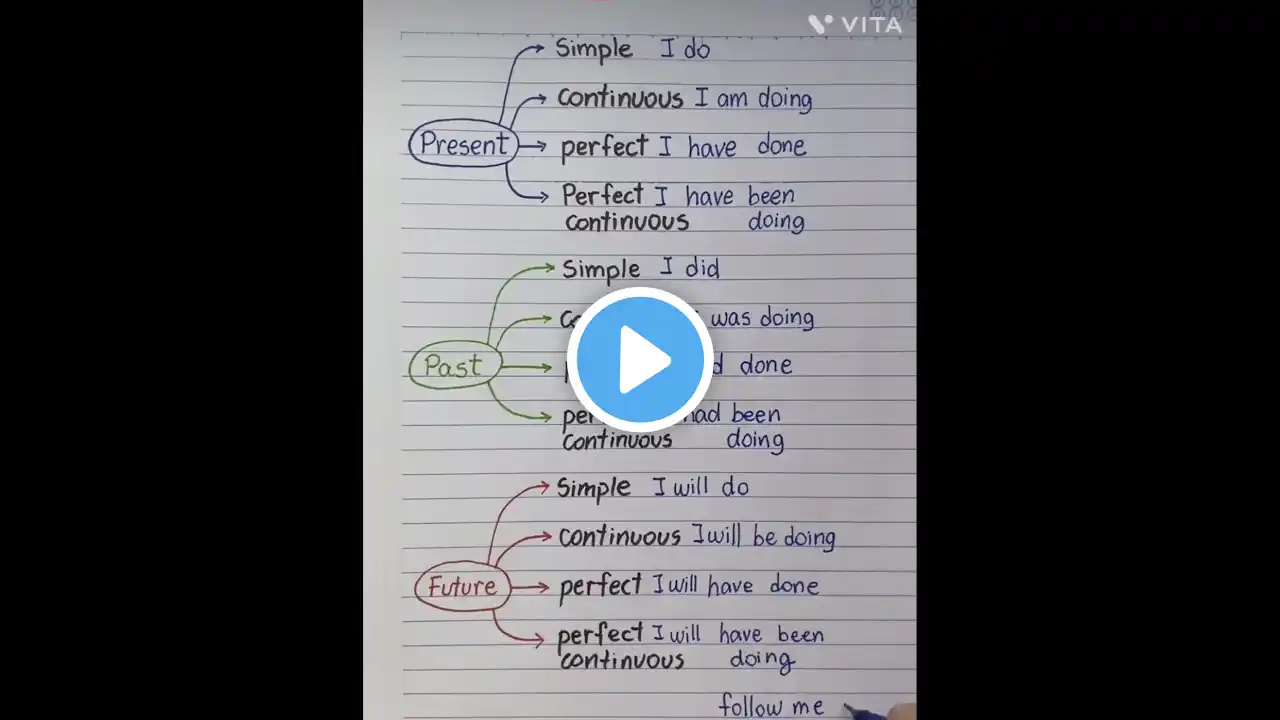 VITA
Simple I do
continuous I am doing
Present
perfect I have done
Perfect I have been
continuous doing
Simple I did
was doing
Past
done
had been
continuous doing
Simple I will do
continuous I will be doing
Future
perfect I will have done
perfect I will have been
continuous doing
follow me